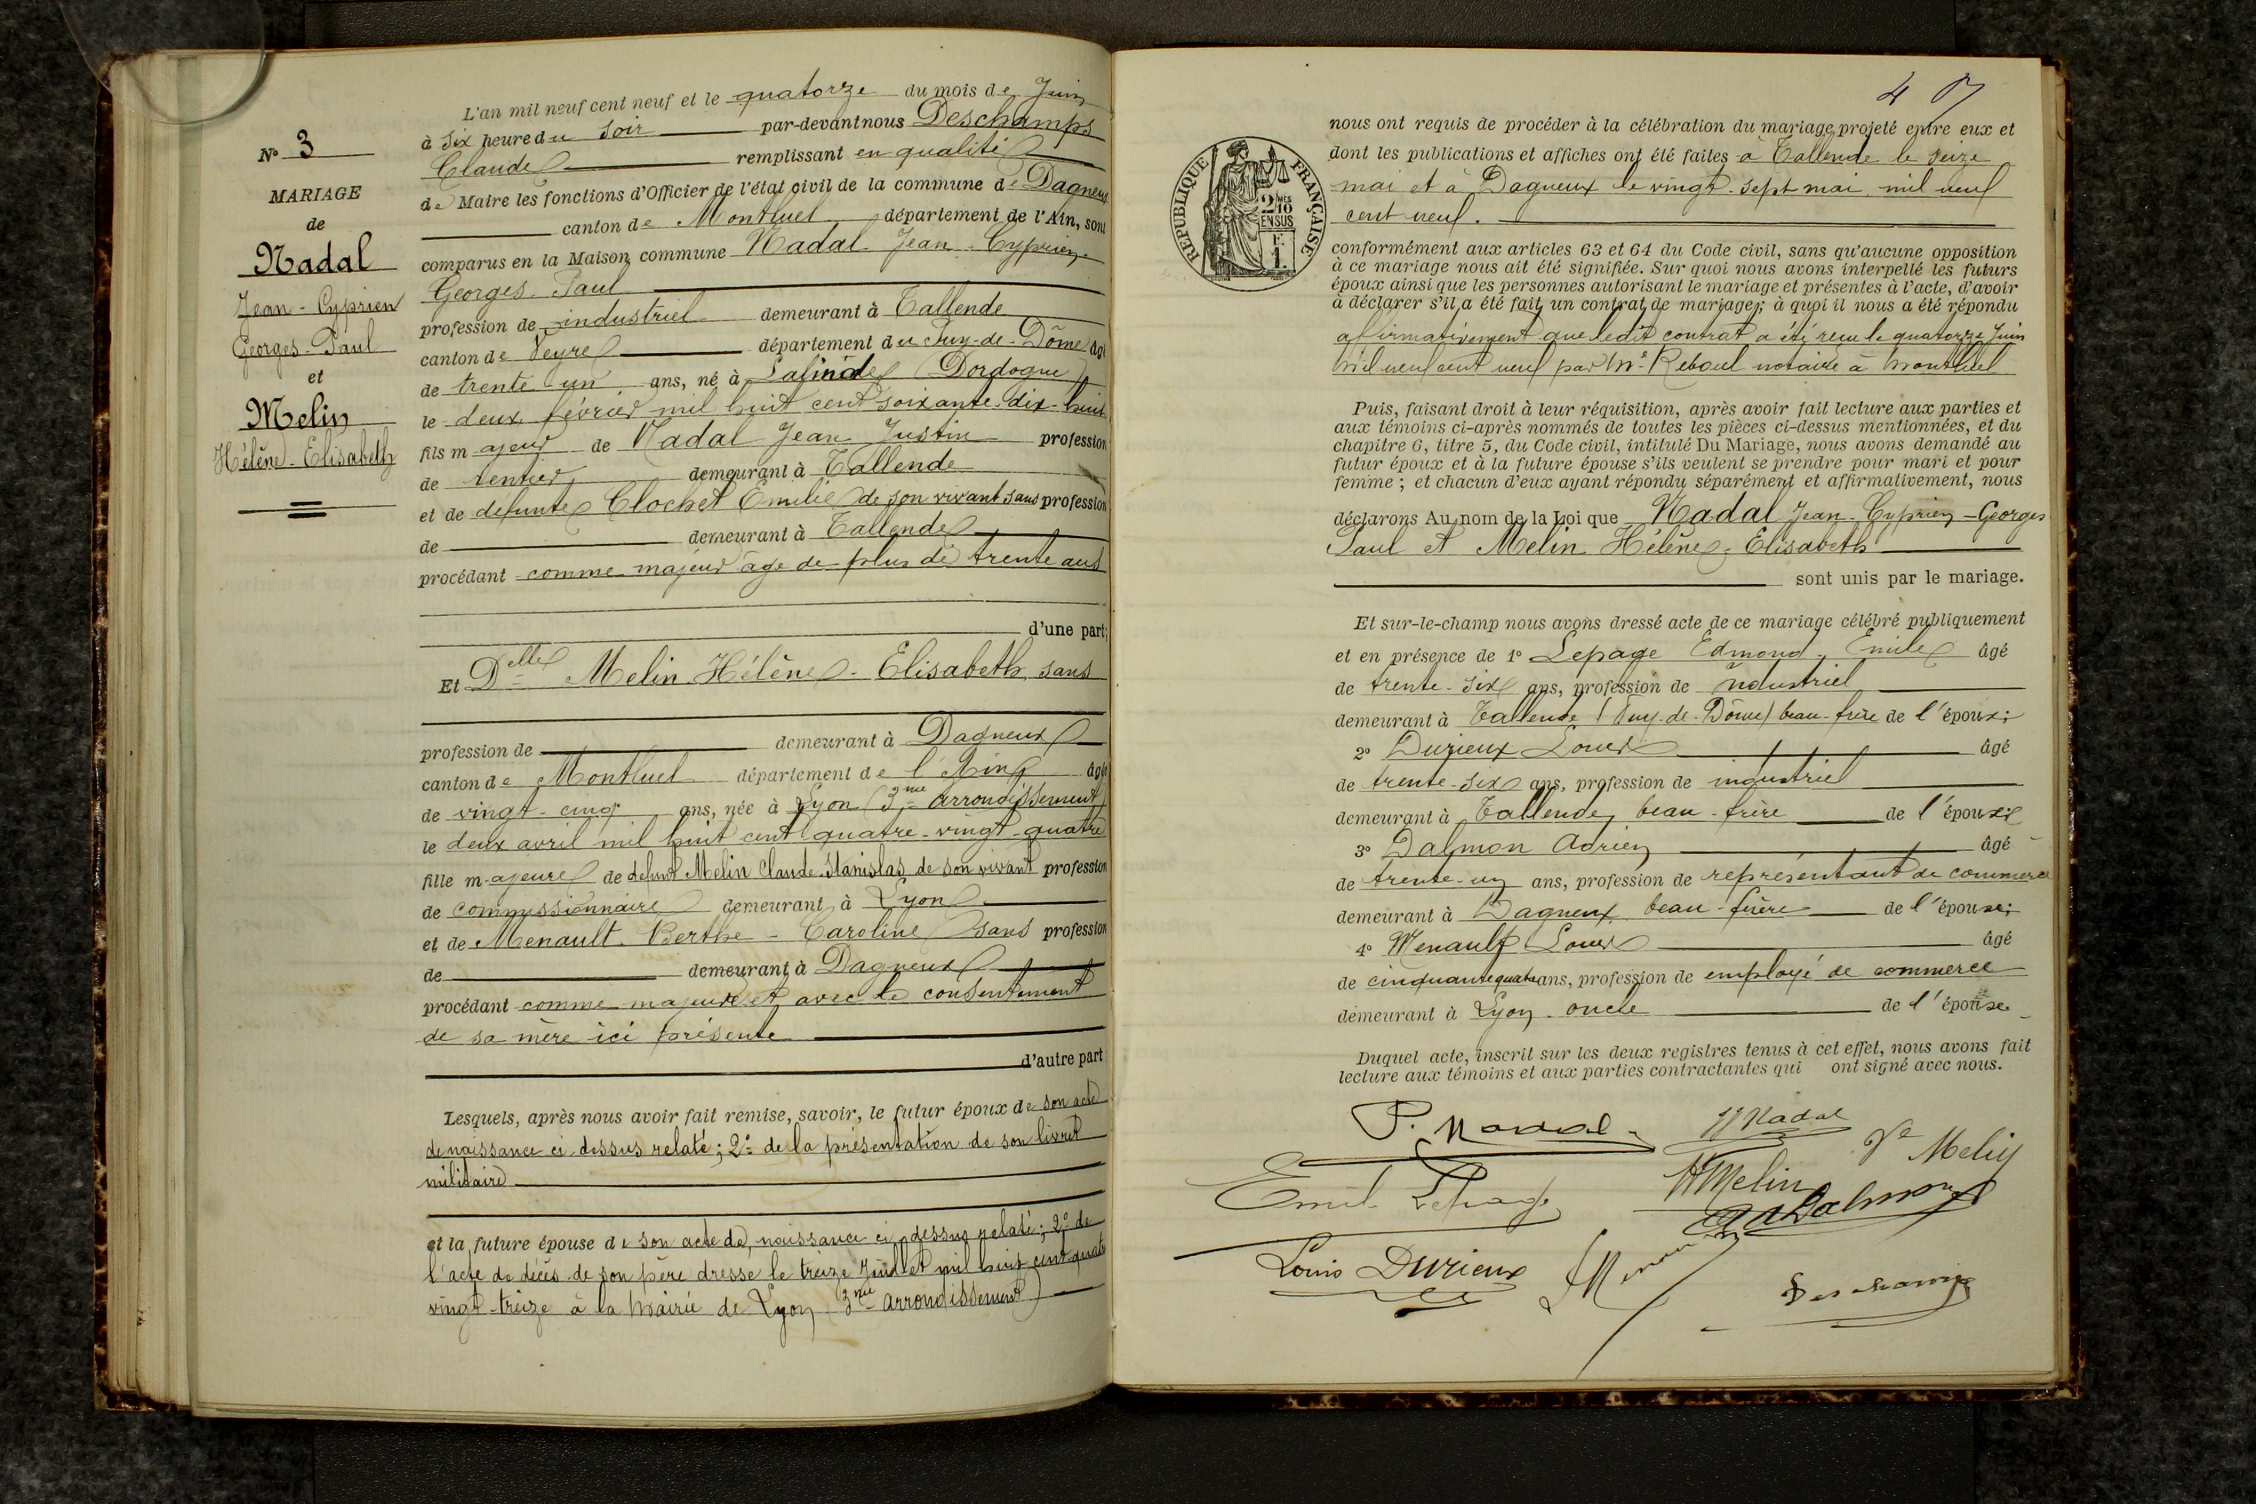 N° 3
MARIAGE
de
Nadal
Jean-Cyprien
Georges-Paul
et
Melin
Hélène-Elisabeth
L'an mil neuf cent neuf et le quatorze du mois de Juin
à six heure du soir par-devant nous Deschamps
Claude remplissant en qualité
de Maire les fonctions d'Officier de l'état civil de la commune de Dagneux
canton de Montluel département de l'Ain, sont
comparus en la Maison commune Nadal Jean-Cyprien-
Georges-Paul
profession de industriel demeurant à Tallende
canton de Veyre département du Puy-de-Dôme âgé
de trente un ans, né à Lalinde (Dordogne)
le deux février mil huit cent soixante-dix-huit
fils majeur de Nadal Jean Justin profession
de rentier demeurant à Tallende
et de défunte Clochet Emilie de son vivant sans profession
de demeurant à Tallende
procédant comme majeur âgé de plus de trente ans
d'une part;
Et Delle Melin Hélène-Elisabeth, sans
profession de demeurant à Dagneux
canton de Montluel département de l'Ain âgée
de vingt-cinq ans, née à Lyon (3me arrondissement)
le deux avril mil huit cent quatre-vingt-quatre
fille majeure de défunt Melin Claude Stanislas de son vivant profession
de commissionnaire demeurant à Lyon
et de Menault Berthe-Caroline sans profession
de demeurant à Dagneux
procédant comme majeure et avec le consentement
de sa mère ici présente
d'autre part
Lesquels, après nous avoir fait remise, savoir, le futur époux de son acte
de naissance ci dessus relaté; 2° de la présentation de son livret
militaire
et la future épouse de son acte de naissance ci dessus relaté; 2° de
l'acte de décès de son père dressé le treize Juillet mil huit cent quatre
vingt-treize à la Mairie de Lyon (3me arrondissement)
4
RÉPUBLIQUE FRANÇAISE
2/10
EN SUS
F.
1.
nous ont requis de procéder à la célébration du mariage projeté entre eux et
dont les publications et affiches ont été faites à Tallende le seize
mai et à Dagneux le vingt-sept mai mil neuf
cent neuf.
conformément aux articles 63 et 64 du Code civil, sans qu'aucune opposition
à ce mariage nous ait été signifiée. Sur quoi nous avons interpellé les futurs
époux ainsi que les personnes autorisant le mariage et présentes à l'acte, d'avoir
à déclarer s'il a été fait un contrat de mariage; à quoi il nous a été répondu
afirmativement que ledit contrat a été reçu le quatorze Juin
mil neuf cent neuf par Me Reboul notaire à Montluel
Puis, faisant droit à leur réquisition, après avoir fait lecture aux parties et
aux témoins ci-après nommés de toutes les pièces ci-dessus mentionnées, et du
chapitre 6, titre 5, du Code civil, intitulé Du Mariage, nous avons demandé au
futur époux et à la future épouse s'ils veulent se prendre pour mari et pour
femme; et chacun d'eux ayant répondu séparément et affirmativement, nous
déclarons Au nom de la Loi que Nadal Jean-Cyprien-Georges
Paul et Melin Hélène-Elisabeth
sont unis par le mariage.
Et sur-le-champ nous avons dressé acte de ce mariage célébré publiquement
et en présence de 1° Lepage Edmond-Emile âgé
de trente-six ans, profession de industriel
demeurant à Tallende (Puy-de-Dôme) beau-frère de l'époux;
2° Durieux Louis âgé
de trente-six ans, profession de industriel
demeurant à Tallende, beau-frère de l'époux;
3° Dalmon Adrien âgé
de trente-un ans, profession de représentant de commerce
demeurant à Dagneux beau-frère de l'épouse;
4° Menault Louis âgé
de cinquante quatre ans, profession de employé de commerce
demeurant à Lyon-oncle de l'épouse
Duquel acte, inscrit sur les deux registres tenus à cet effet, nous avons fait
lecture aux témoins et aux parties contractantes qui ont signé avec nous.
P. Nadal
Nadal
Ve Melin
Emile Lepage
H Melin
A Dalmon
Louis Durieux
Deschamps